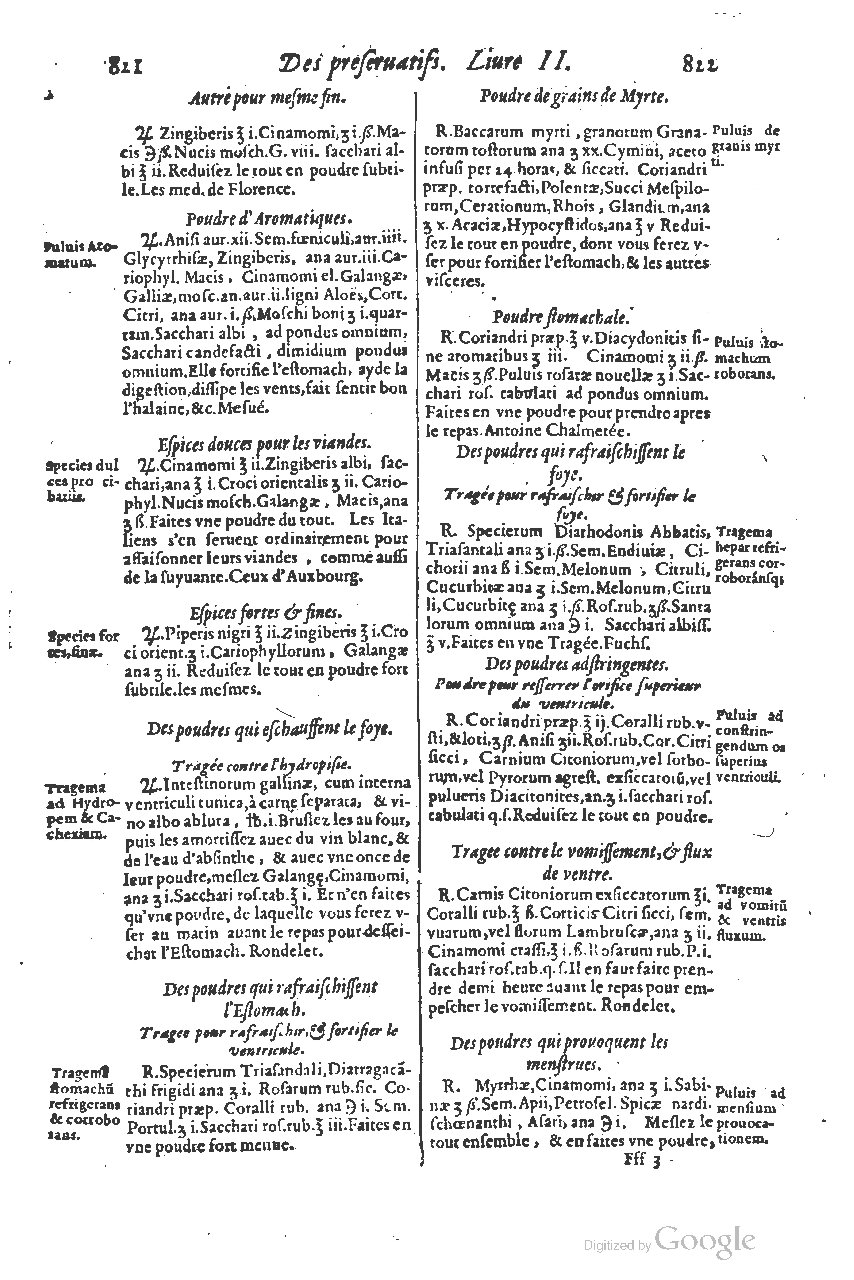 811
Des preſeruatifs. Liure II.
822
Autre pour meſme fin.
♃. Zingiberis ℥ i. Cinamomi, ʒ i.ß. Ma-
cis ℈ß. Nucis moſch. G. viii. ſacchari al-
bi ℥ ii. Reduiſez le tout en poudre ſubti-
le. Les med. de Florence.
Poudre d'Aromatiques.
Puluis Aro-
matum.
♃. Aniſi aur. xii. Sem. fœniculi, aur. iiii.
Glycyrrhiſæ, Zingiberis, ana aur. iii. Ca-
riophyl. Macis, Cinamomi el. Galangæ,
Galliæ, moſc. an. aur. ii. ligni Aloës, Cort.
Citri, ana aur. i.ß. Moſchi boni ʒ i. quar-
tam. Sacchari albi, ad pondus omnium,
Sacchari candefacti, dimidium pondus
omnium. Elle fortifie l'eſtomach, ayde la
digeſtion, diſſipe les vents, fait ſentir bon
l'halaine, &c. Meſué.
Eſpices douces pour les viandes.
Species dul
ces pro ci-
bariis.
♃. Cinamomi ℥ ii. Zingiberis albi, ſac-
chari, ana ℥ i. Croci orientalis ʒ ii. Cario-
phyl. Nucis moſch. Galangæ, Macis, ana
ʒ ß. Faites vne poudre du tout. Les Ita-
liens s'en ſeruent ordinairement pour
aſſaiſonner leurs viandes, comme auſſi
de la ſuyuante. Ceux d'Auxbourg.
Eſpices fortes & fines.
Species for
tes, finæ.
♃. Piperis nigri ℥ ii. Zingiberis ℥ i. Cro
ci orient. ʒ i. Cariophyllorum, Galangæ
ana ʒ ii. Reduiſez le tout en poudre fort
ſubtile. les meſmes.
Des poudres qui eſchauffent le foye.
Tragée contre l'hydropiſie.
Tragema
ad Hydro-
pem & Ca-
chexiam.
♃. Inteſtinorum gallinæ, cum interna
ventriculi tunica, à carne ſeparata, & vi-
no albo abluta, ℔. i. Bruſlez les au four,
puis les amortiſſez auec du vin blanc, &
de l'eau d'abſinthe, & auec vne once de
leur poudre, meſlez Galangę, Cinamomi,
ana ʒ i. Sacchari roſ. tab. ℥ i. Et n'en faites
qu'vne poudre, de laquelle vous ferez v-
ſer au matin auant le repas pour deſſei-
cher l'Eſtomach. Rondelet.
Des poudres qui rafraiſchiſſent
l'Eſtomach.
Tragee pour rafraiſchir, & fortifier le
ventricule.
Tragema
ſtomachū
refrigerans
& corrobo
rans.
R. Specierum Triaſandali, Diatragacā-
thi frigidi ana ʒ i. Roſarum rub. ſic. Co-
riandri præp. Coralli rub. ana ℈ i. Sem.
Portul. ʒ i. Sacchari roſ. rub. ℥ iii. Faites en
vne poudre fort menue.
Poudre de grains de Myrte.
R. Baccarum myrti, granorum Grana-
torum toſtorum ana ʒ xx. Cymini, aceto
infuſi per 24 horas, & ſiccati. Coriandri
præp. torrefacti, Polentæ, Succi Meſpilo-
rum, Cerationum, Rhois, Glandium, ana
ʒ x. Acaciæ, Hypocyſtidos, ana ℥ v Redui-
ſez le tout en poudre, dont vous ferez v-
ſer pour fortifier l'eſtomach, & les autres
viſceres.
Puluis de
granis myr
ti.
Poudre ſtomachale.
R. Coriandri præp. ℥ v. Diacydonitis ſi-
ne aromatibus ʒ iii. Cinamomi ʒ ii.ß.
Macis ʒ ß. Puluis roſatæ nouellæ ʒ i. Sac-
chari roſ. tabulati ad pondus omnium.
Faites en vne poudre pour prendre apres
le repas. Antoine Chalmetée.
Puluis ſto-
machum
roborans.
Des poudres qui rafraiſchiſſent le
foye.
Tragée pour rafraiſchir & fortifier le
foye.
R. Specierum Diarhodonis Abbatis,
Triaſantali ana ʒ i.ß. Sem. Endiuiæ, Ci-
chorii ana ß i. Sem. Melonum, Citruli,
Cucurbitæ ana ʒ i. Sem. Melonum, Citru
li, Cucurbitę ana ʒ i.ß. Roſ. rub. ʒß. Santa
lorum omnium ana ℈ i. Sacchari albiſſ.
℥ v. Faites en vne Tragée. Fuchſ.
Tragema
hepar refri-
gerans cor-
roboránſq;
Des poudres adſtringentes.
Poudre pour reſſerrer l'orifice ſuperieur
du ventricule.
R. Coriandri præp. ℥ ij. Coralli rub. v-
ſti, & loti, ʒ ß. Aniſi ʒii. Roſ. rub. Cor. Citri
ſicci, Carnium Citoniorum, vel ſorbo-
rum, vel Pyrorum agreſt. exſiccatorū, vel
pulueris Diacitonites, an. ʒ i. ſacchari roſ.
tabulati q.ſ. Reduiſez le tout en poudre.
Puluis ad
conſtrin-
gendum os
ſuperius
ventriculi.
Tragee contre le vomiſſement, & flux
de ventre.
R. Carnis Citoniorum exſiccatorum ℥i.
Coralli rub. ℥ ß. Corticis Citri ſicci, ſem.
vuarum, vel florum Lambruſcæ, ana ʒ ii.
Cinamomi craſſi, ℥ i.ß. Roſarum rub. P. i.
ſacchari roſ. tab. q.ſ. Il en faut faire pren-
dre demi heure auant le repas pour em-
peſcher le vomiſſement. Rondelet.
Tragema
ad vomitū
& ventris
fluxum.
Des poudres qui prouoquent les
menſtrues.
R. Myrrhæ, Cinamomi, ana ʒ i. Sabi-
næ ʒ ß. Sem. Apii, Petroſel. Spicæ nardi.
ſchœnanthi, Aſari, ana ℈ i. Meſlez le
tout enſemble, & en faites vne poudre,
Puluis ad
menſium
prouoca-
tionem.
Fff 3
Digitized by Google